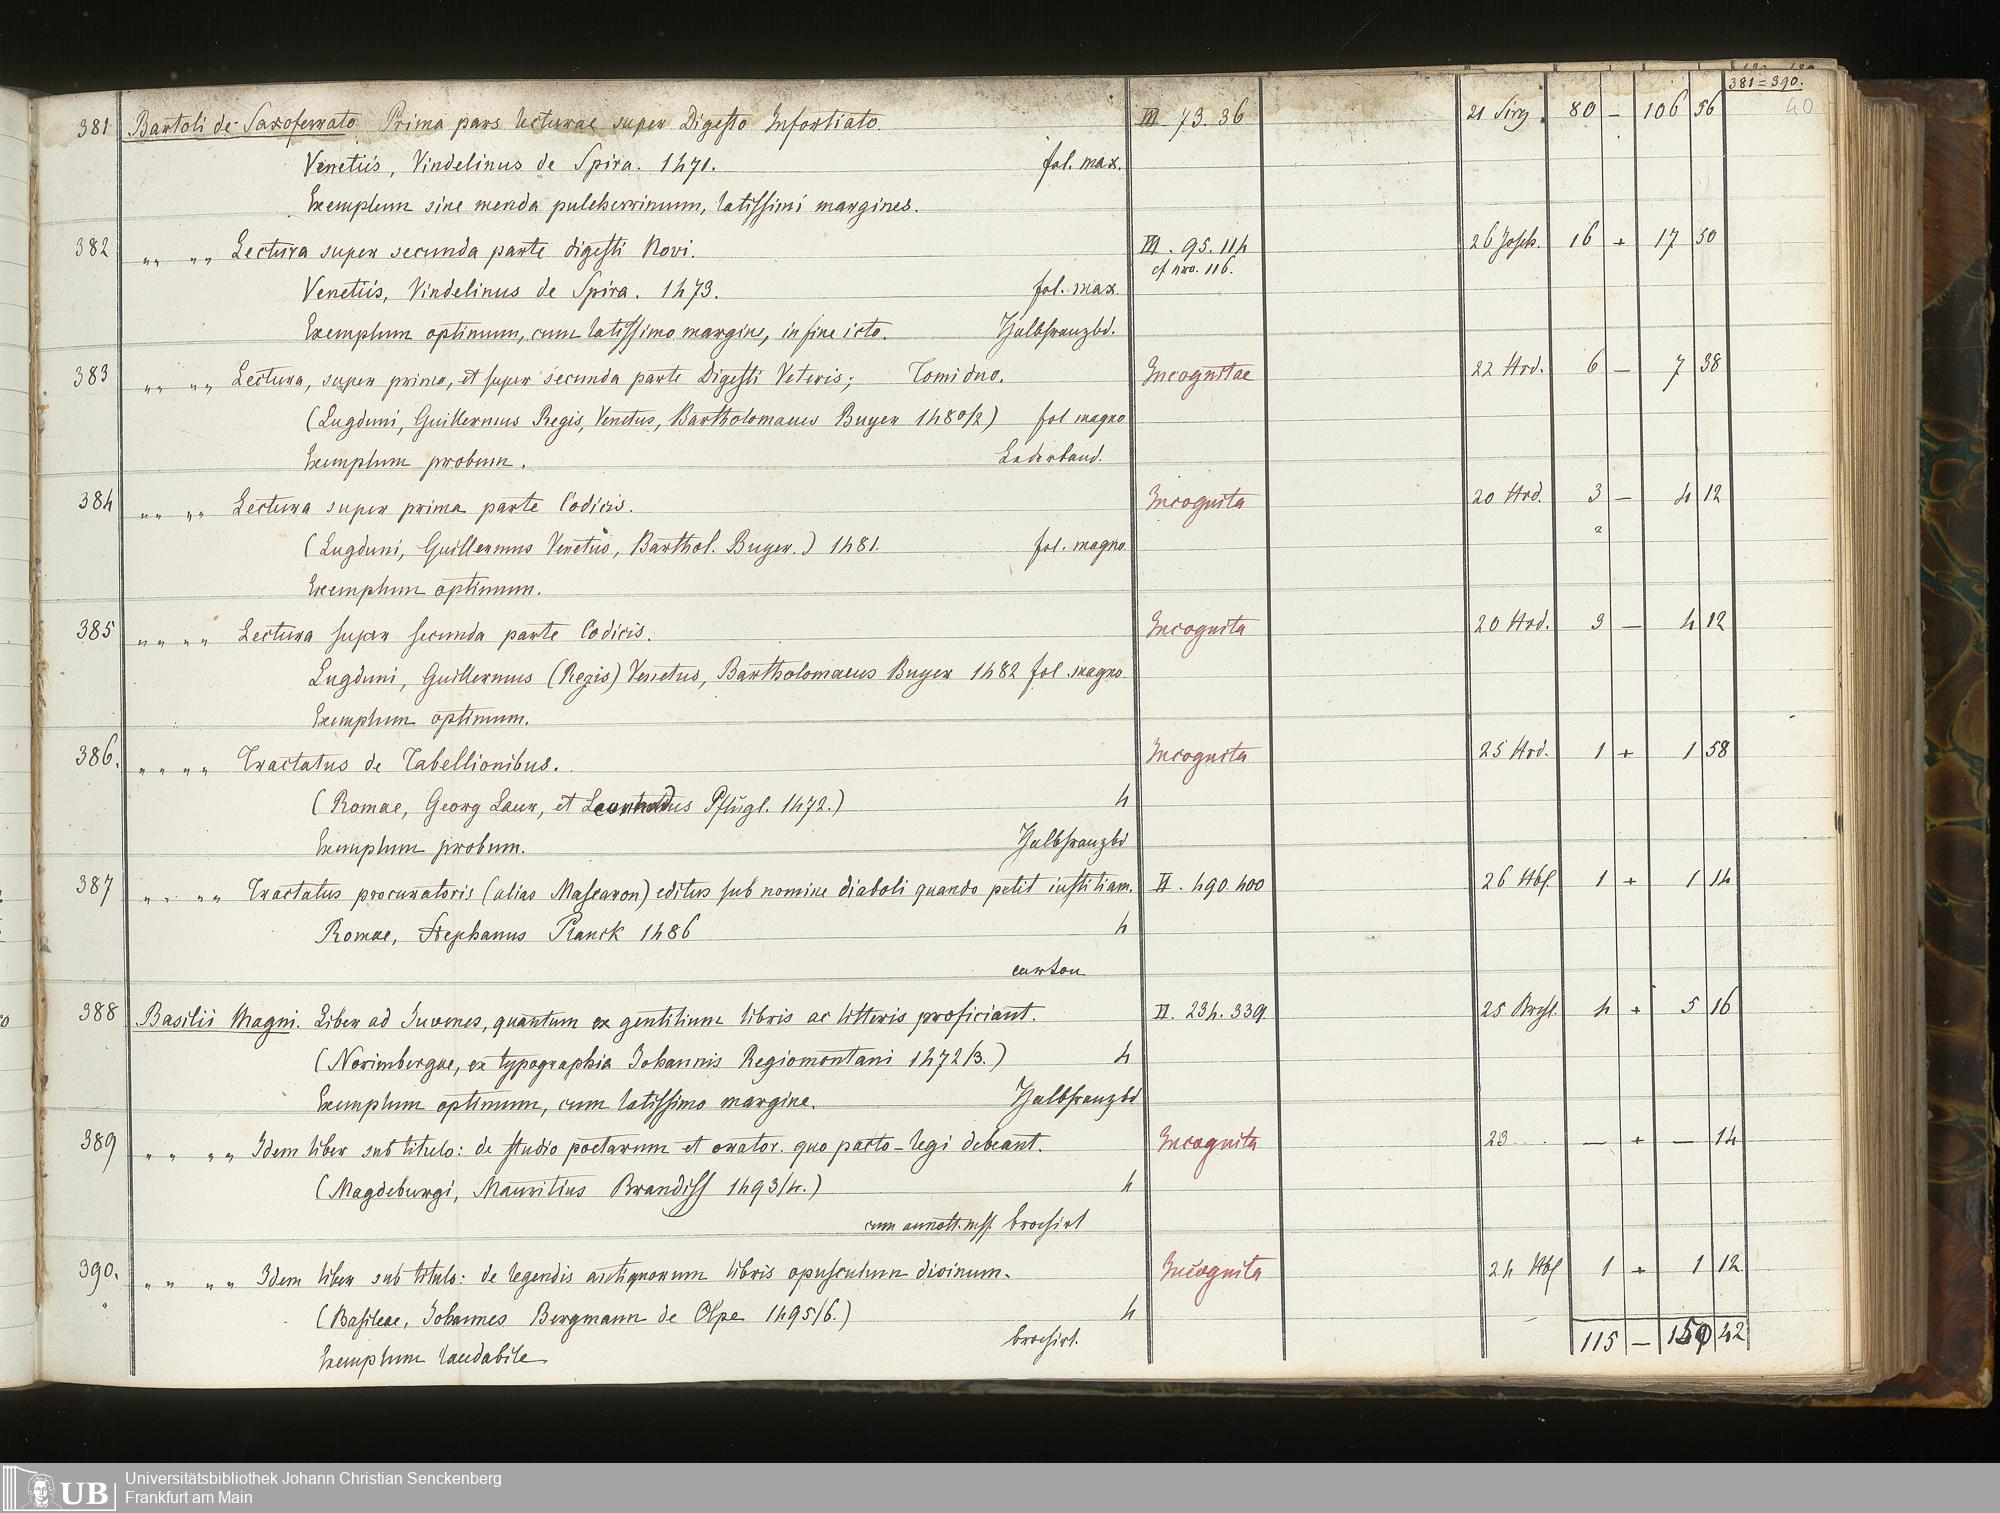 381=390.
40
381 Bartoli de Saxoferrato Prima pars lecturae super Digesto Infortiato. III 73. 36 21 Sirg. 80 – 106 56
Venetiis, Vindelinus de Spira. 1471. fol. max.
Exemplum sine menda pulcherrimum, latissimi margines.
382 „„ „„ Lectura super secunda parte digesti Novi. III. 95. 114 26 Joseh. 16 + 17 50
cf nro. 116.
Venetiis, Vindelinus de Spira. 1473. fol. max.
Exemplum optimum, cum latissimo margine, in fine icto. Halbfranzbd.
383 „„ „„ Lectura, super prima, et super secunda parte Digesti Veteris; Tomi duo. Incognitae 22 Hrd. 6 – 7 38
(Lugduni, Guillermus Regis, Venetus, Bartholomaeus Buyer 1480/2) fol magno
Exemplum probum. Lederband.
384 „„ „„ Lectura super prima parte Codicis. Incognita 20 Hrd. 3 – 4 12
(Lugduni, Guillermus Venetus, Barthol. Buyer.) 1481. fol. magno
Exemplum optimum.
385 „„ „„ Lectura super secunda parte Codicis. Incognita 20 Hrd. 3 – 4 12
Lugduni, Guillermus (Regis) Venetus, Bartholomaeus Buyer 1482 fol magno
Exemplum optimum.
386. „ „ „ „ Tractatus de Tabellionibus. Incognita 25 Hrd. 1 + 1 58
(Romae, Georg Laur, et Leonhardus Pflugl. 1472.) 4
Exemplum probum. Halbfranzbd
387 „ „ „„ Tractatus procuratoris (alias Mascaron) editus sub nomine diaboli quando petit iustitiam. II. 490. 400 26 Hbf. 1 + 1 14
Romae, Stephanus Planck 1486 4
carton
388 Basilii Magni. Liber ad Juvenes, quantum ex gentilium libris ac litteris proficiant. II. 234. 339. 25 Bresl. 4 + 5 16
(Norimbergae, ex typographia Johannis Regiomontani 1472/3.) 4
Exemplum optimum, cum latissimo margine. Halbfranzbd
389 „ „ „ „ Idem liber sub titulo: de studio poetarum et orator. quo pacto legi debeant. Incognita 23 — + — 14
(Magdeburgi, Mauritius Brandiss 1493/4.) 4
cum annott. mss. brosirt
390. „ „ „ „ Idem liber sub titulo: de legendis antiquorum libris opusculum divinum. Incognita 24 Hbf 1 + 1 12
(Basileae, Johannes Bergmann de Olpe 1495/6.) 4
Exemplum laudabile brosirt.
115 – 150 42
UB Universitätsbibliothek Johann Christian Senckenberg
Frankfurt am Main